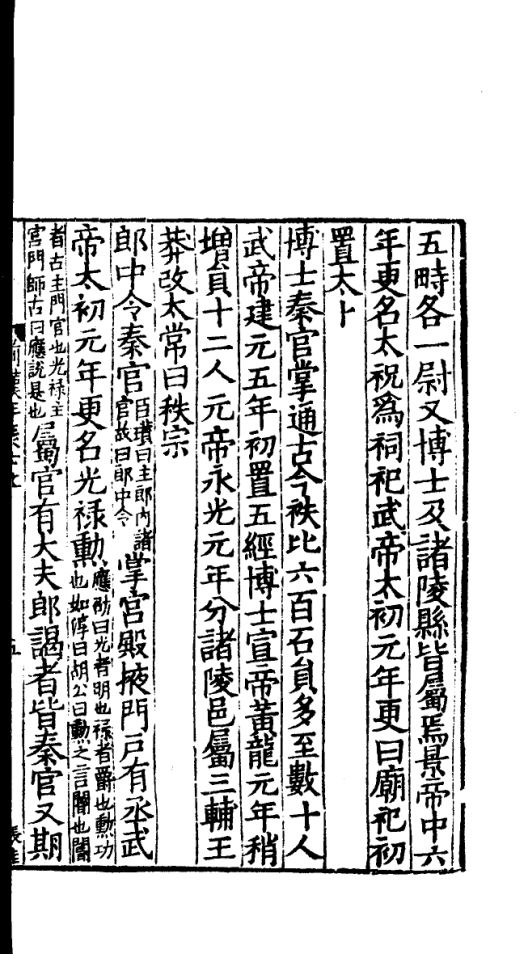 五畤各一尉又博士及諸陵縣皆屬焉景帝中六
年更名太祝爲祠祀武帝太初元年更曰廟祀初
置太卜
博士秦官掌通古今秩比六百石員多至數十人
武帝建元五年初置五經博士宣帝黃龍元年稍
增員十二人元帝永光元年分諸陵邑屬三輔王
莽改太常曰秩宗
郎中令秦官臣瓚曰主郎內諸官故曰郎中令掌宮殿掖門戶有丞武
帝太初元年更名光祿勳應劭曰光者明也祿者爵也勲功也如淳曰胡公曰勳之言閽也閽
者古主門官也光祿主宮門師古曰應說是也屬官有大夫郎謁者皆秦官又期
五